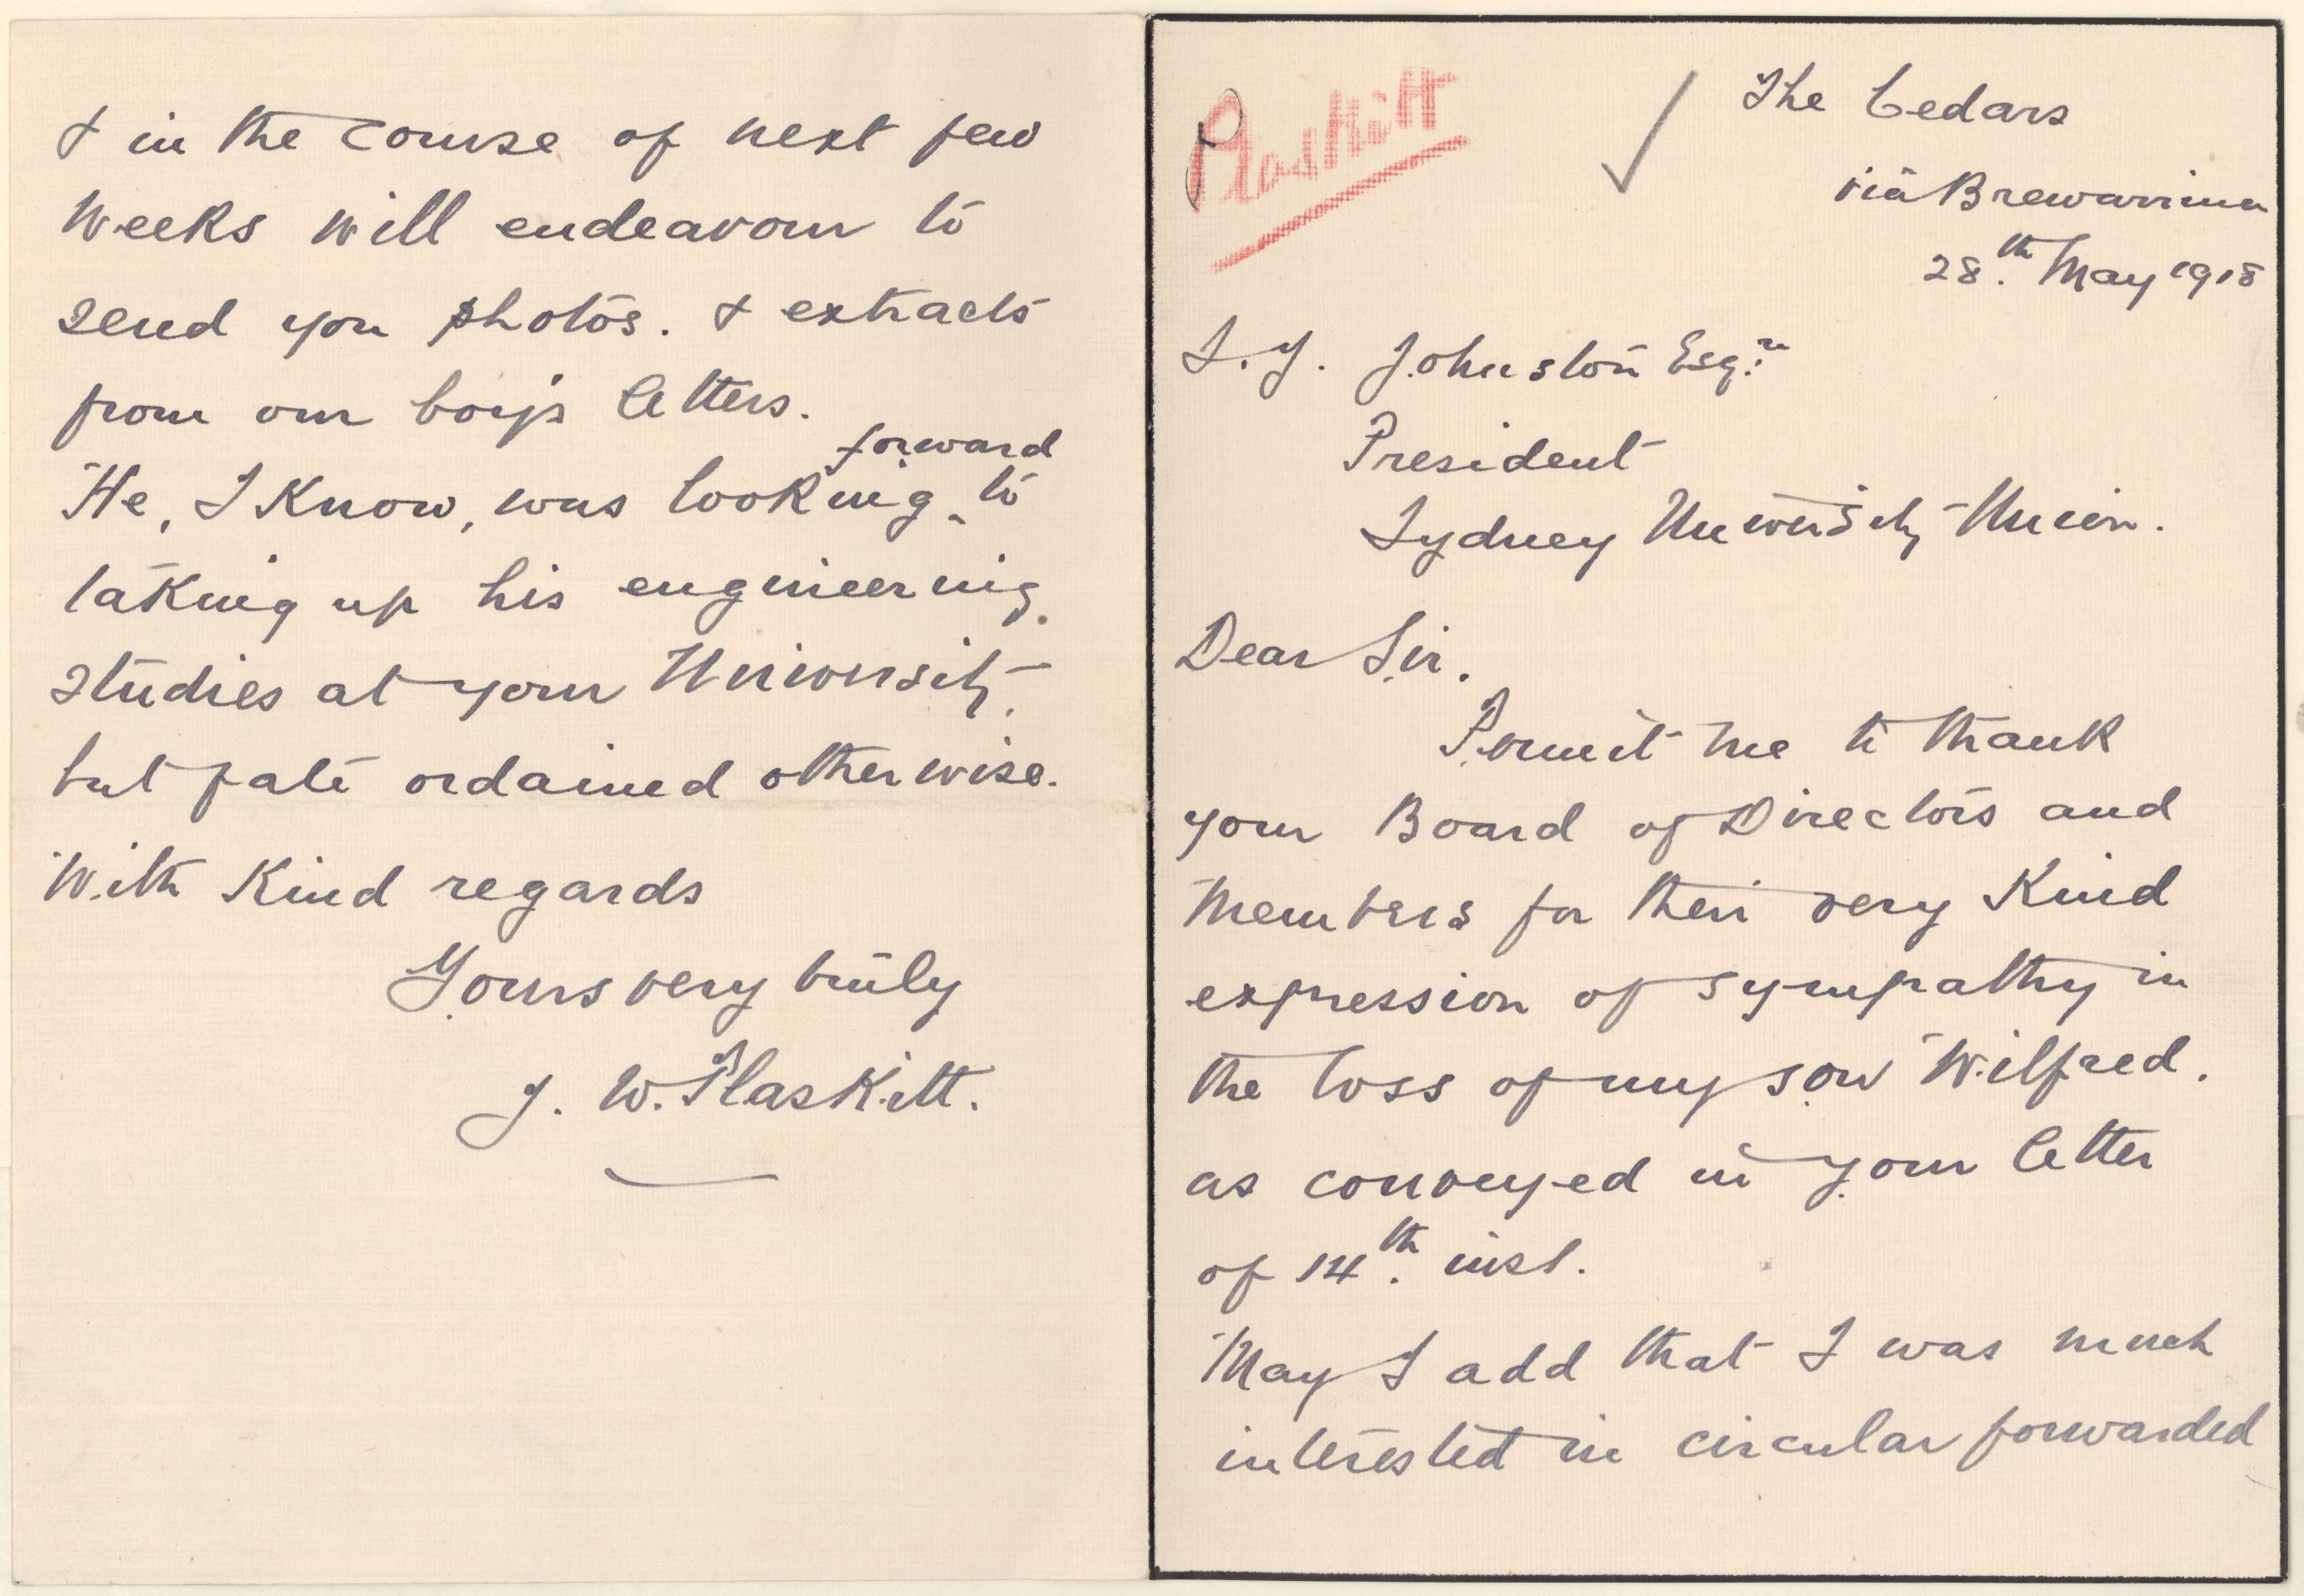 Plaskitt
The Cedars
via Brewarrina
28th. May 1918
S. J. Johnston Esqre
President
Sydney University Union.
Dear Sir.
Permit me to thank
your Board of Directors and
Members for their very Kind
expression of sympathy in
the loss of my son Wilfred.
as conveyed in your letter
of 14th. inst.
May I add that I was much
interested in circular forwarded
& in the course of next few
weeks will endeavour to
send you photos. & extracts
from our boy's letters.
forward
He, I Know, was looking ‸ to
taking up his engineering
studies at your University.
but fate ordained otherwise.
With Kind regards
Yours very truly
J. W. Plaskitt.